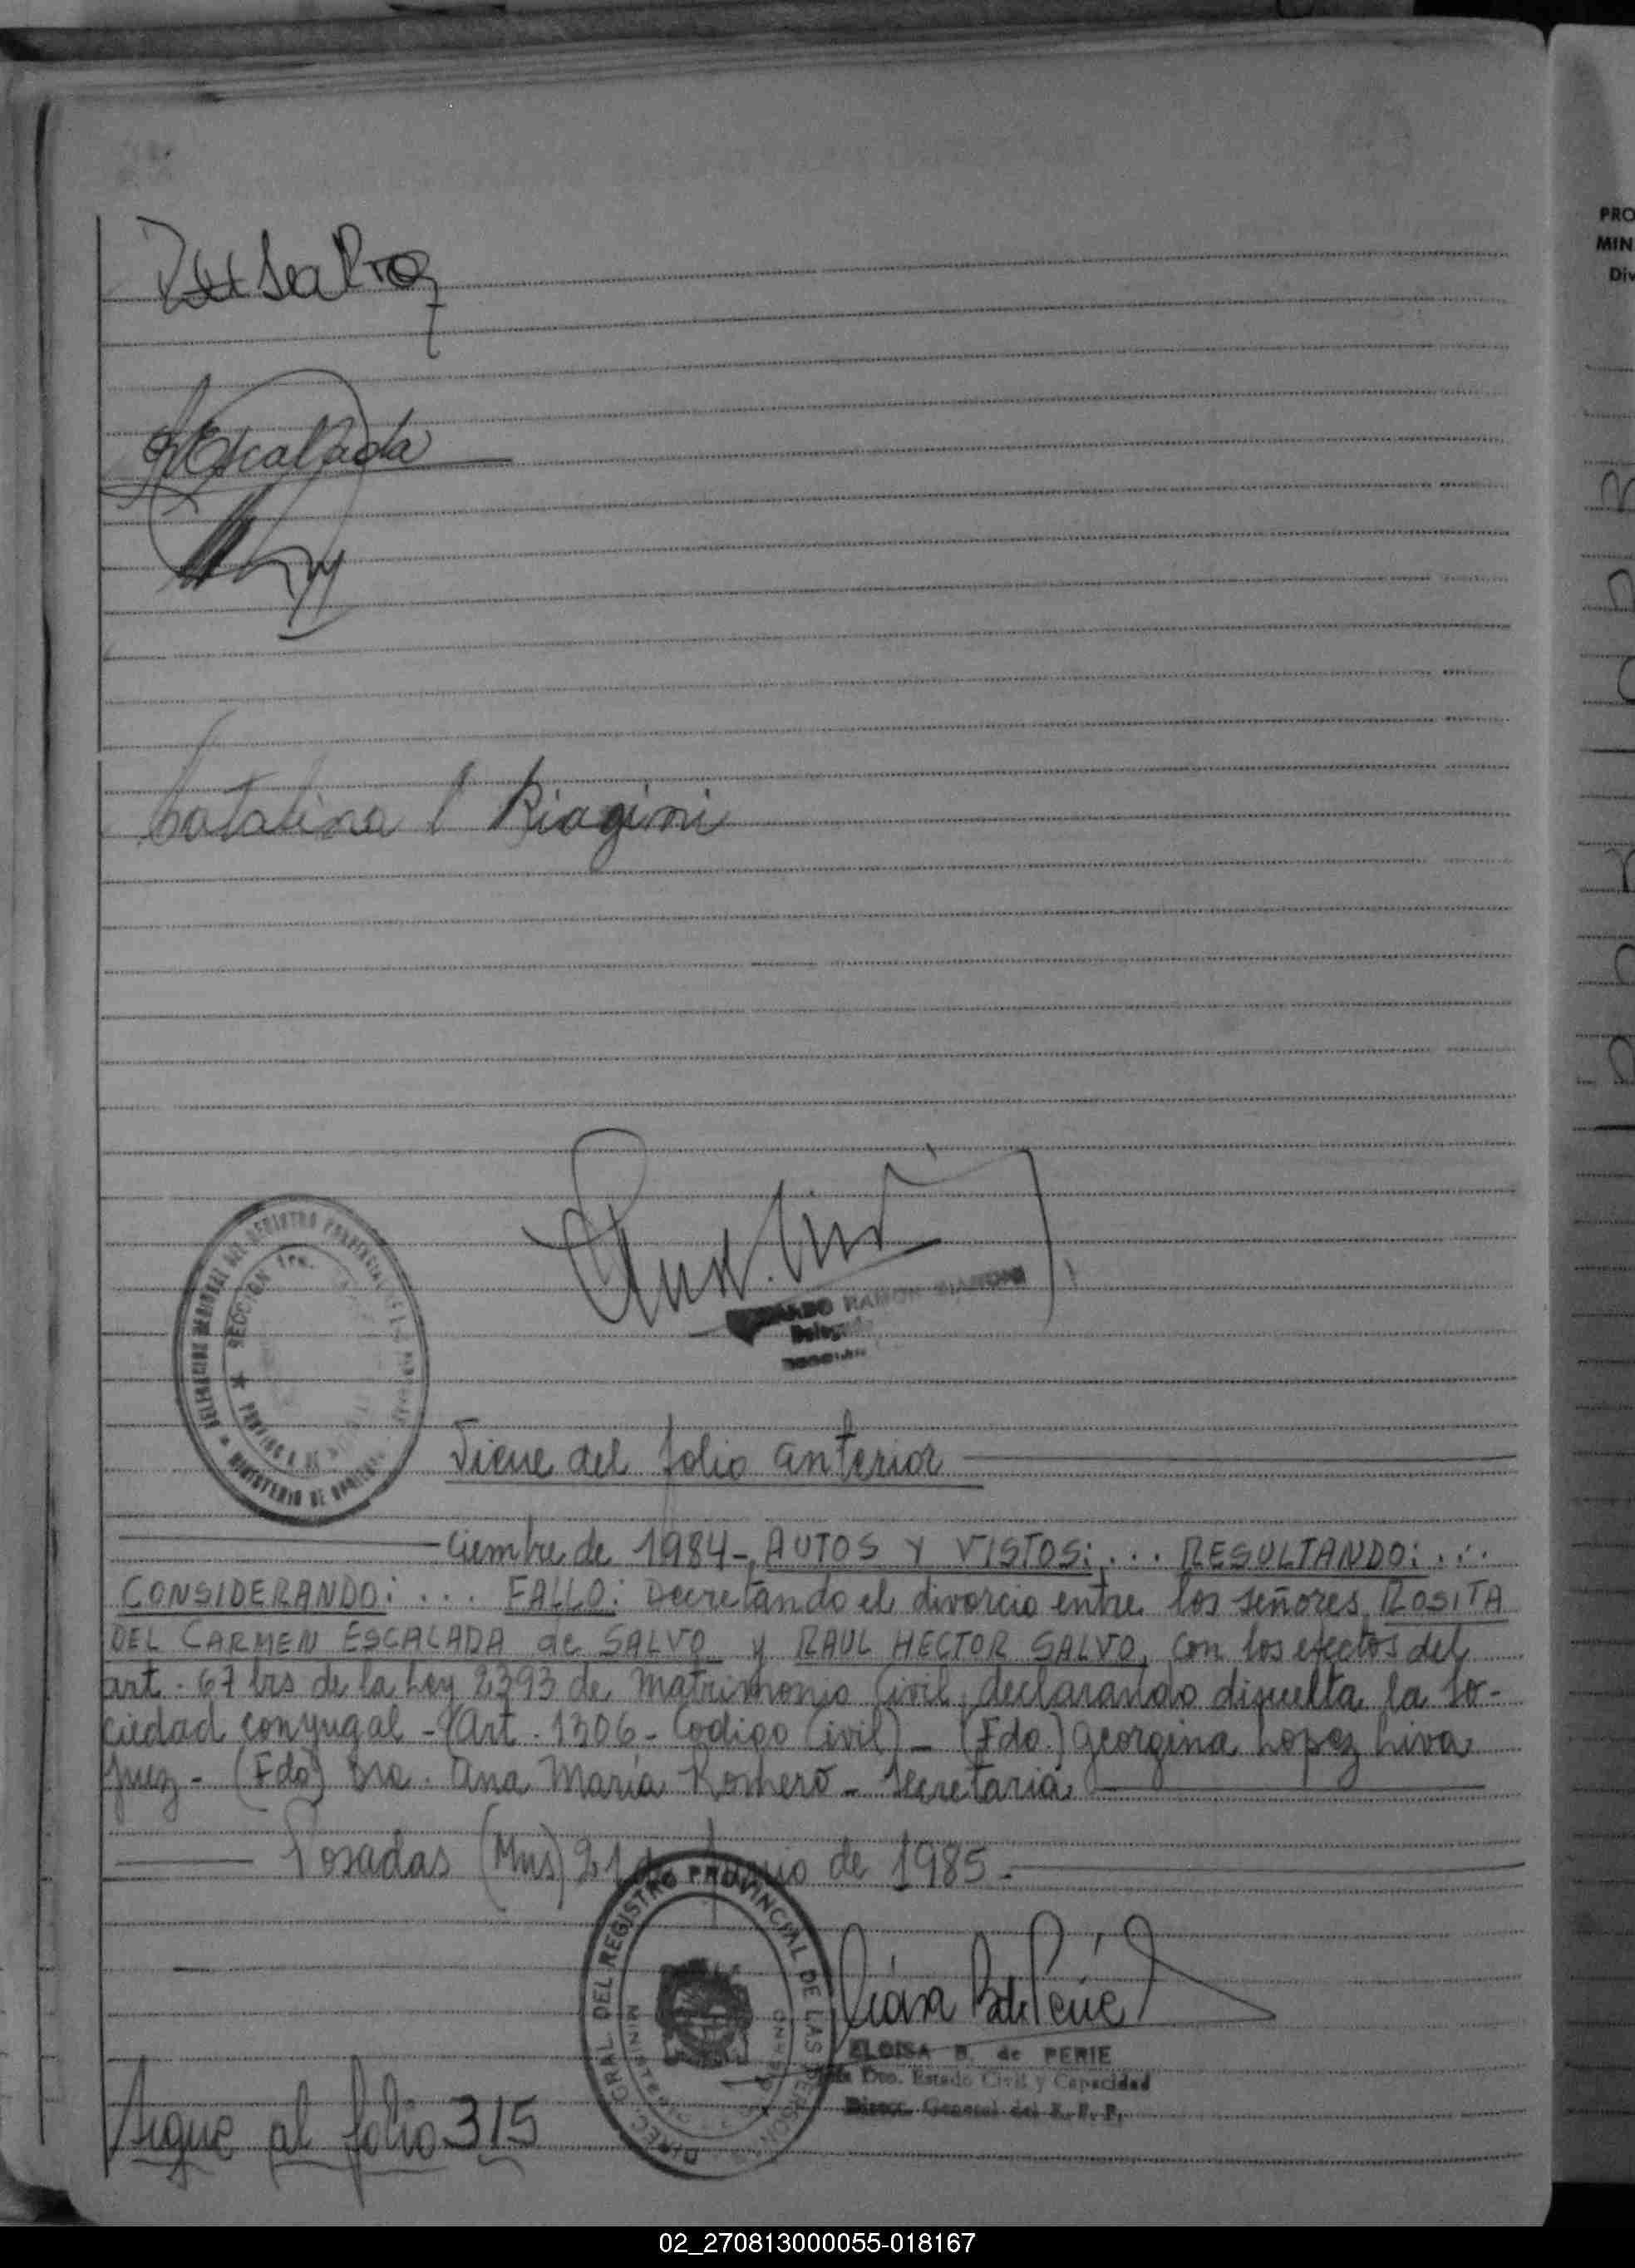 Escalada
Catalina Biagini
RAMON
Delegado
DELEGACION REGIONAL DEL REGISTRO PROVINCIAL DE LAS
SECCION 1ra.
PROVINCIA DE
MINISTERIO DE
Viene del folio anterior
ciembre de 1984-, AUTOS Y VISTOS: ... RESULTANDO: ...
CONSIDERANDO: ... FALLO: Decretando el divorcio entre los señores ROSITA
DEL CARMEN ESCALADA de SALVO y RAUL HECTOR SALVO, con los efectos del
art. 67 bis de la Ley 2393 de Matrimonio Civil, declarando disuelta la so-
ciedad conyugal - (Art. 1306 - Codigo Civil) - (Fdo.) Georgina Lopez Liva
Juez - (Fdo) Dra. Ana María Romero - Secretaria
Posadas (Mns) 21 de Junio de 1985.-
DIREC. GRAL DEL REGISTRO PROVINCIAL DE LAS PERSON
ELOISA B. de PERIE
Dto. Estado Civil y Capacidad
Direcc. General del R. P. P.
Sigue al folio 315
PRO
MIN
Div
02_270813000055-018167